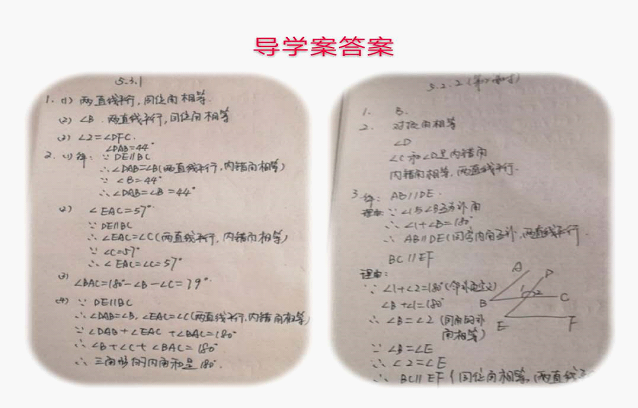 导学案答案
5.3.1
1. (1) 两直线平行,同位角相等.
(2) ∠B. 两直线平行,同位角相等
(3) ∠2=∠DFC.
∠DAB=44°
2. (1) 解: ∵ DE∥BC
∴ ∠DAB=∠B(两直线平行,内错角相等)
∵ ∠B=44°
∴ ∠DAB=∠B=44°
(2) ∠EAC=57°
∵ DE∥BC
∴ ∠EAC=∠C(两直线平行,内错角相等)
∵ ∠C=57°
∴ ∠EAC=∠C=57°
(3)
∠BAC=180°-∠B-∠C=79°
(4) ∵ DE∥BC
∴ ∠DAB=∠B, ∠EAC=∠C(两直线平行,内错角相等)
∵ ∠DAB+∠EAC+∠BAC=180°
∴ ∠B+∠C+∠BAC=180°
∴ 三角形的内角和是180°.
5.2.2
1. B.
2. 对顶角相等
∠D
∠C和∠D是内错角
内错角相等,两直线平行.
3. 解: AB∥DE.
理由: ∵ ∠1与∠B互为补角
∴ ∠1+∠B=180°
∴ AB∥DE(同旁内角互补,两直线平行.
BC∥EF
理由:
∵ ∠1+∠2=180°
∠B+∠1=180°
∴ ∠B=∠2 (同角的补
角相等)
∵ ∠B=∠E
∴ ∠2=∠E
∴ BC∥EF (同位角相等,两直线
A
D
1 2
B
C
E
F